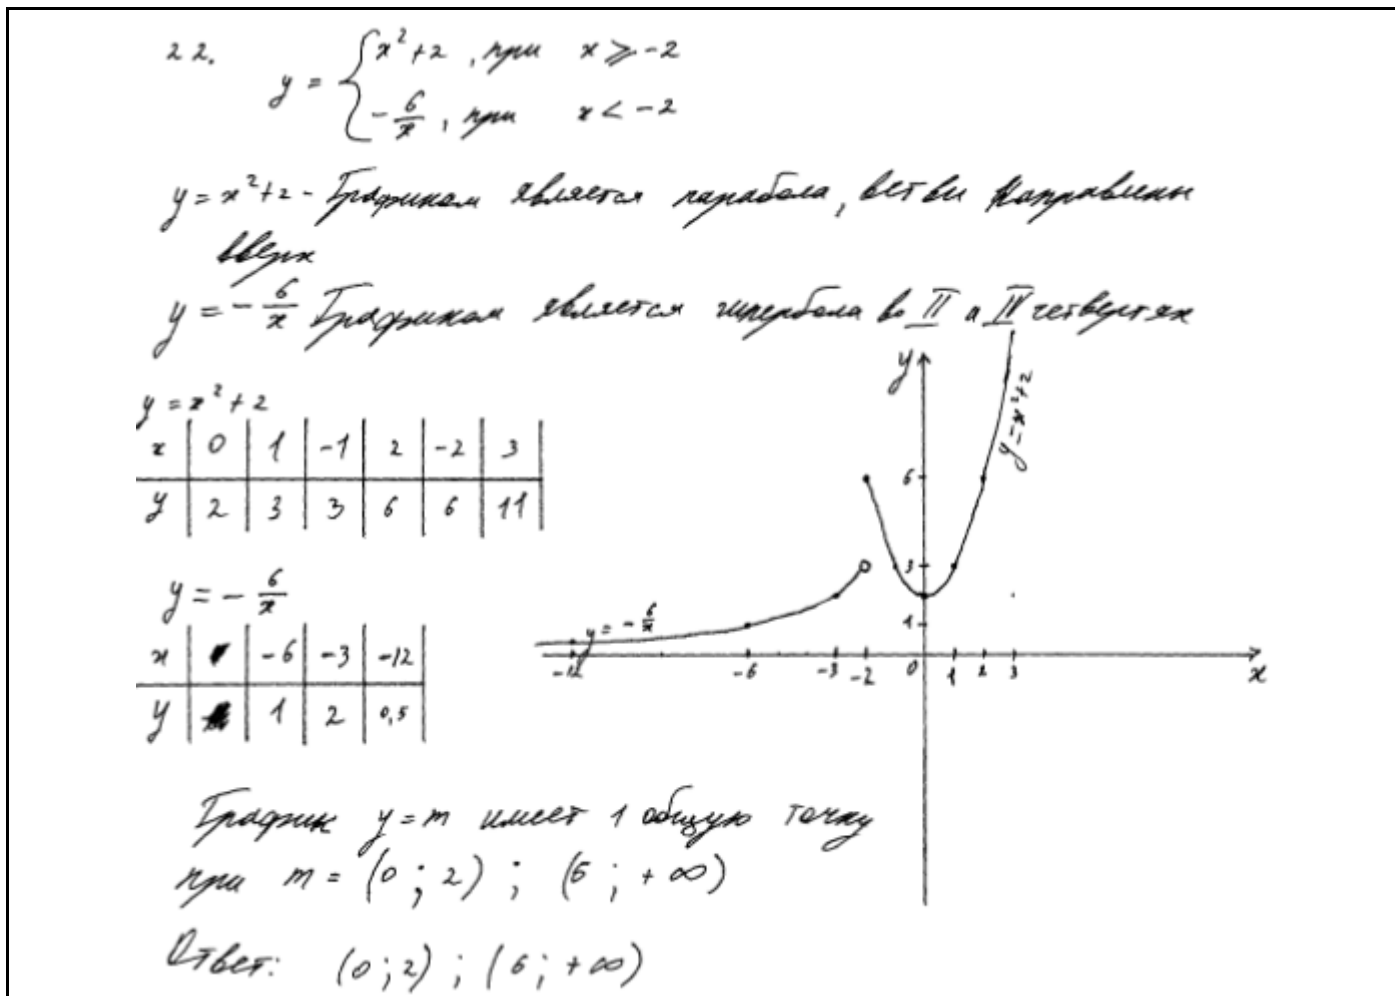 22.
y = { x² + 2 , при x ⩾ -2
-6/x , при x < -2
y = x² + 2 - Графиком является парабола, ветви направлены
вверх
y = - 6/x Графиком является гипербола во II и IV четвертях
y = x² + 2
x | 0 | 1 | -1 | 2 | -2 | 3
y | 2 | 3 | 3 | 6 | 6 | 11
y = - 6/x
x | -6 | -3 | -12
y | 1 | 2 | 0,5
y
y = x² + 2
6
3
1
y = - 6/x
-12 -6 -3 -2 0 1 2 3 x
График y = m имеет 1 общую точку
при m = (0 ; 2) ; (6 ; + ∞)
Ответ: (0 ; 2) ; (6 ; + ∞)